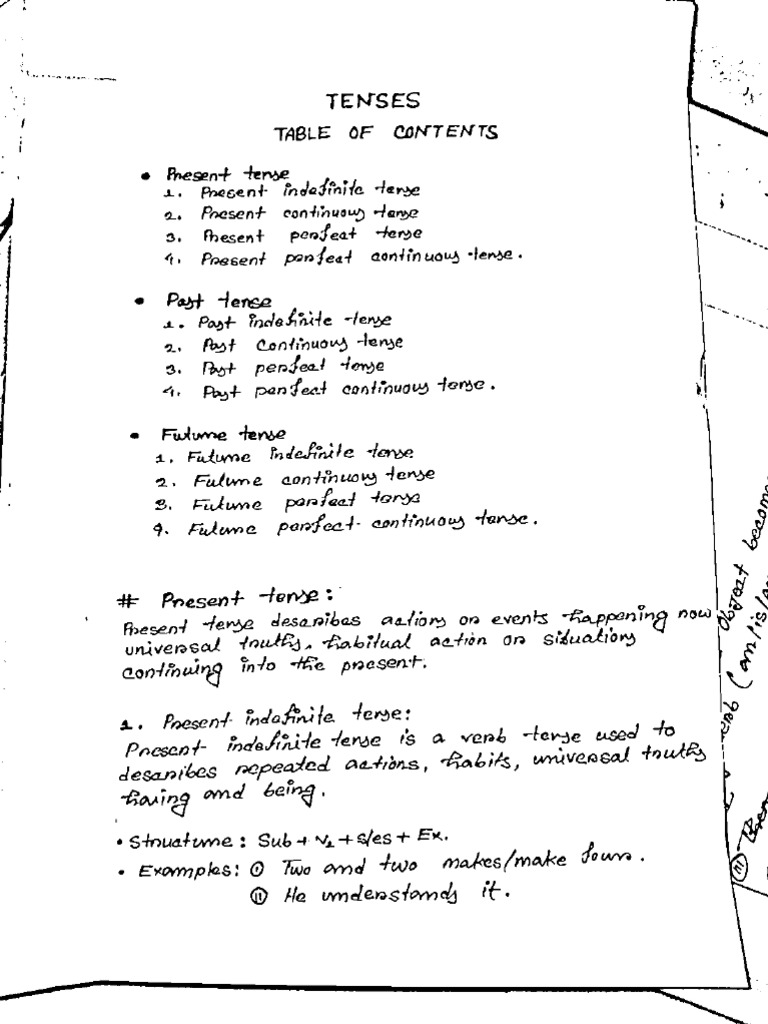 TENSES
TABLE OF CONTENTS
• Present tense
1. Present indefinite tense
2. Present continuous tense
3. Present perfect tense
4. Present perfect continuous tense.
• Past tense
1. Past indefinite tense
2. Past continuous tense
3. Past perfect tense
4. Past perfect continuous tense.
• Future tense
1. Future indefinite tense
2. Future continuous tense
3. Future perfect tense
4. Future perfect continuous tense.
# Present tense:
Present tense describes actions or events happening now
universal truths, habitual action or situations
continuing into the present.
1. Present indefinite tense:
Present indefinite tense is a verb tense used to
describes repeated actions, habits, universal truths
having and being.
• Structure: Sub + V1 + s/es + Ex.
• Examples: (i) Two and two makes/make four.
(ii) He understands it.
Object
(am/is/
(iii)